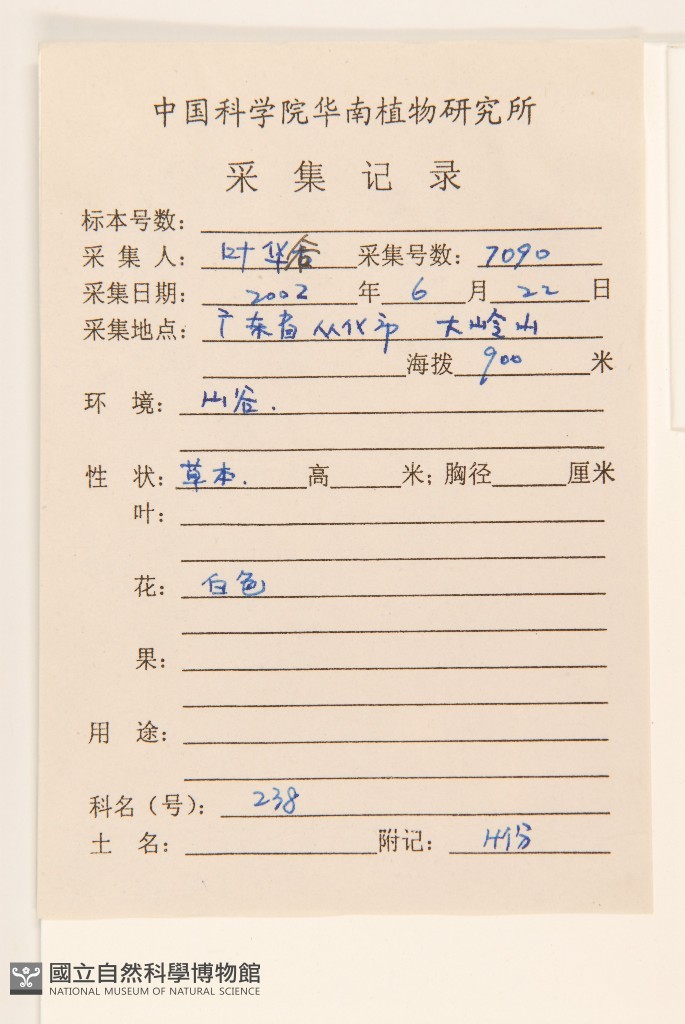 中国科学院华南植物研究所
采集记录
标本号数:
采集人: 叶华谷 采集号数: 7090
采集日期: 2002 年 6 月 22 日
采集地点: 广东省从化市 大岭山
海拨 900 米
环境: 山谷.
性状: 草本. 高 米; 胸径 厘米
叶:
花: 白色
果:
用途:
科名(号): 238
土名: 附记: 4份
國立自然科學博物館
NATIONAL MUSEUM OF NATURAL SCIENCE